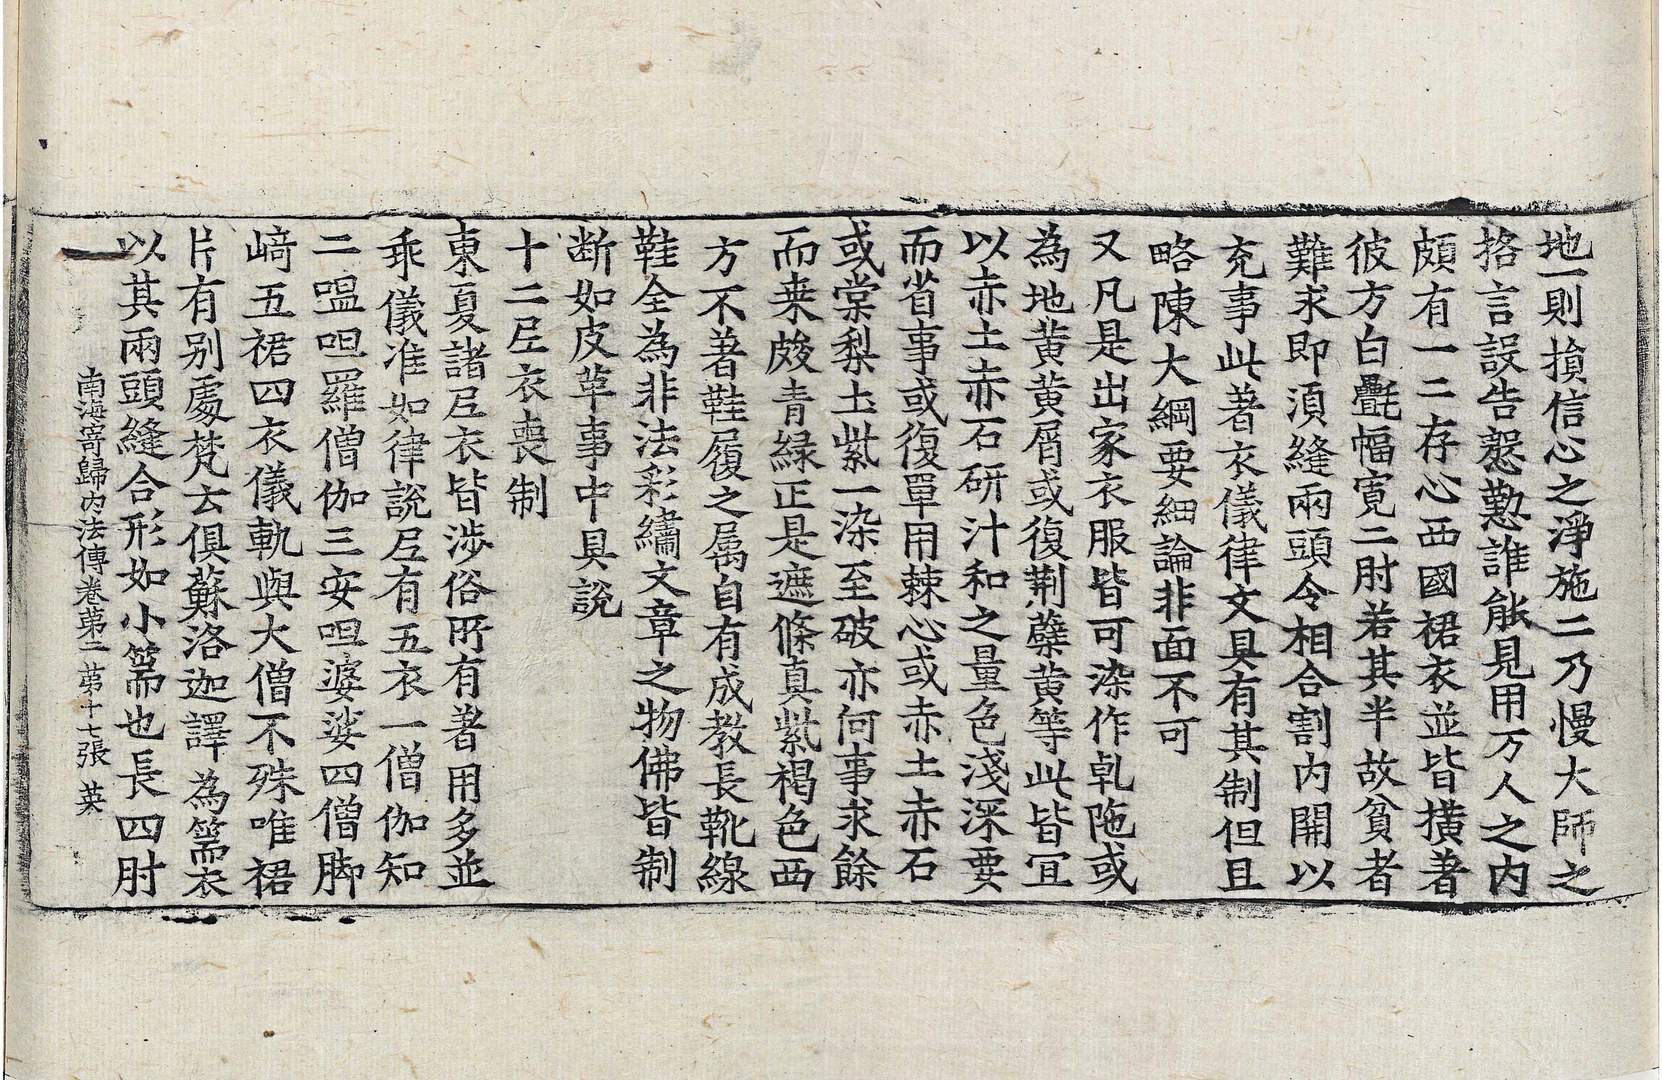 地一則損信心之淨施二乃慢大師之
格言設告慇懃誰能見用万人之內
頗有一二存心西國裙衣並皆橫著
彼方白㲲幅寬二肘若其半故貧者
難求即湏縫兩頭令相合割內開以
充事此著衣儀律文具有其制但且
略陳大綱要細論非面不可
又凡是出家衣服皆可染作乹陁或
為地黃黃屑或復荆蘗黃等此皆宜
以赤土赤石研汁和之量色淺深要
而省事或復單用棘心或赤土赤石
或棠梨土紫一染至破亦何事求餘
而来皴青綠正是遮條真紫褐色西
方不著鞋履之屬自有成教長靴線
鞋全為非法彩繡文章之物佛皆制
断如皮革事中具說
十二𡰱衣喪制
東夏諸𡰱衣皆涉俗所有著用多並
乖儀准如律說𡰱有五衣一僧伽知
二嗢呾羅僧伽三安呾婆娑四僧脚
﨑五裙四衣儀軌與大僧不殊唯裙
片有别處梵云俱蘇洛迦譯為篅衣
以其兩頭縫合形如小篅也長四肘
南海寄歸內法傳卷第二 第十七張 英